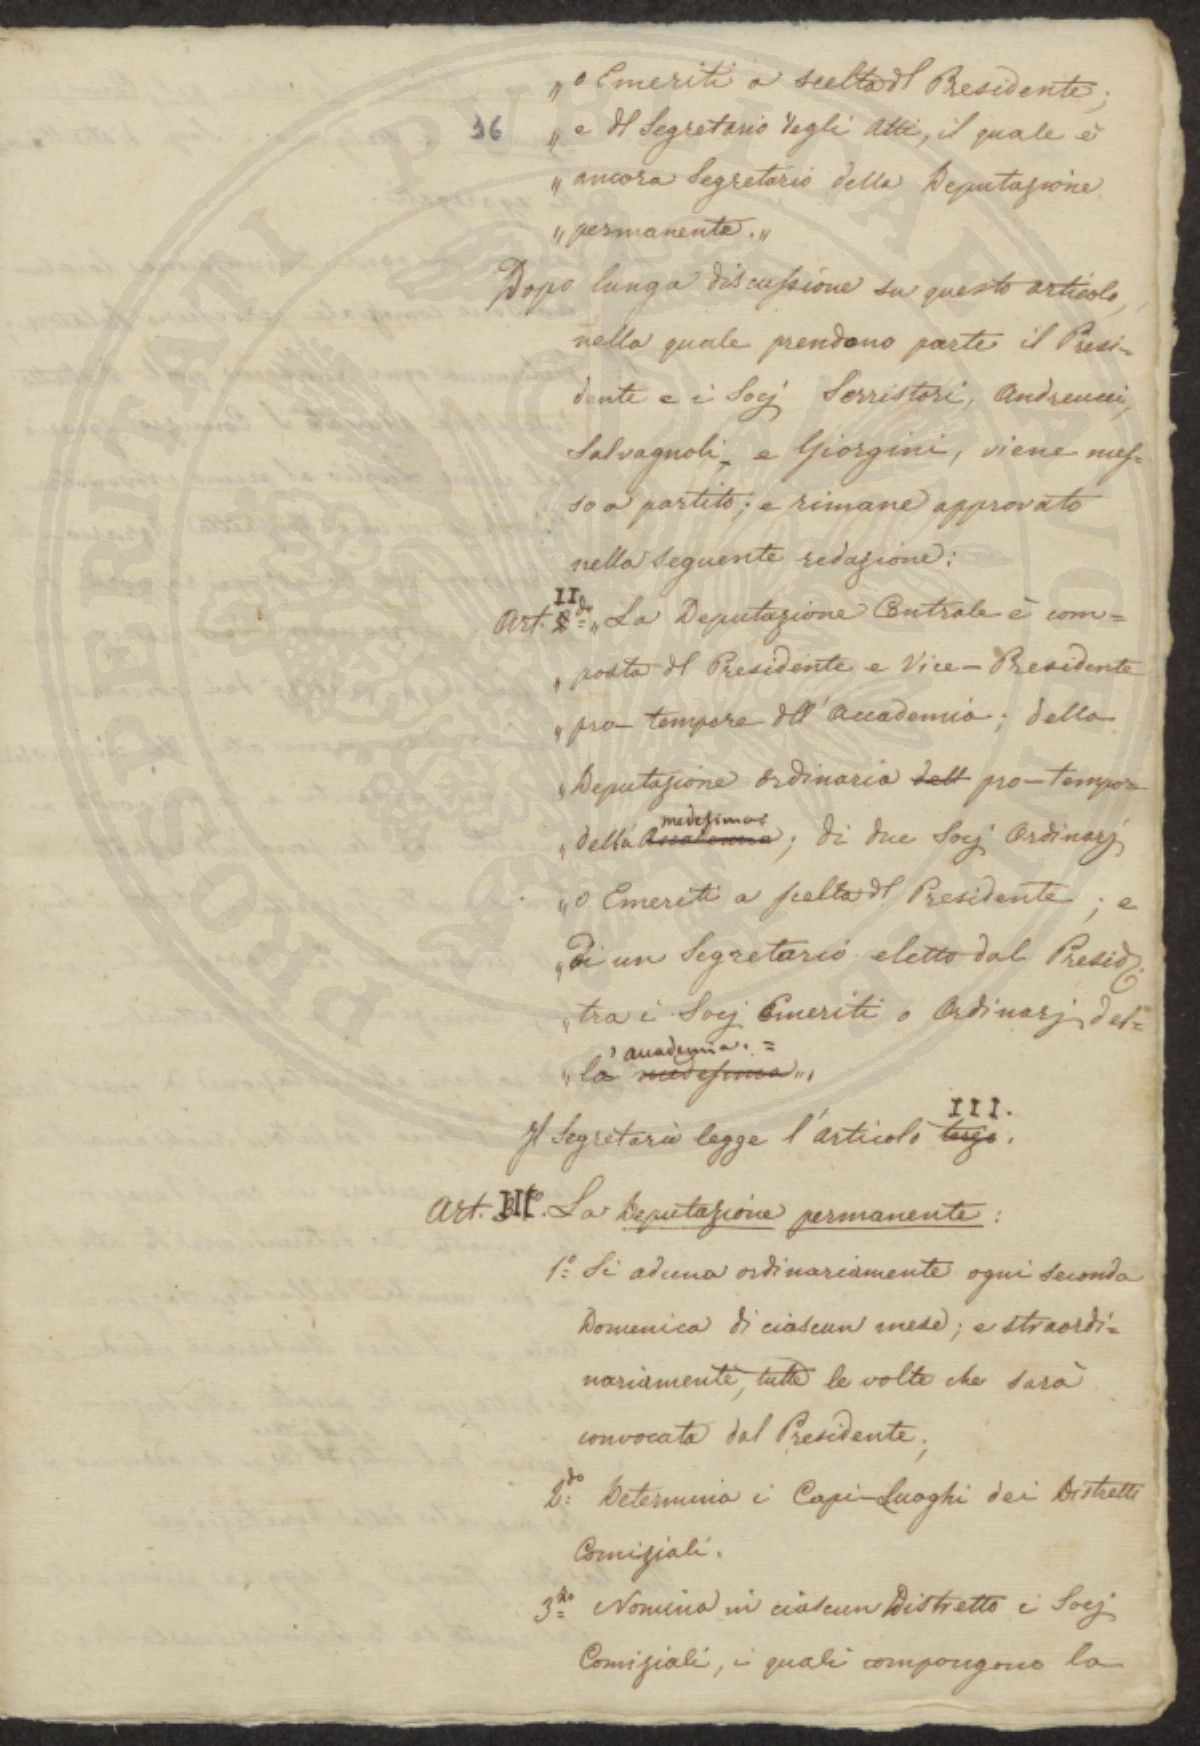 „ o Emeriti a scelta dl Presidente;
36
„ e dl Segretario degli Atti, il quale è
„ ancora Segretario della Deputazione
„ permanente. „
Dopo lunga discussione su questo articolo,
nella quale prendono parte il Presi=
dente e i Socj Serristori, Andreucci,
Salvagnoli, e Giorgini, viene mes=
so a partito; e rimane approvato
nella seguente redazione:
Art. II do „ La Deputazione Centrale è com=
„ posta dl Presidente e Vice-Presidente
„ pro tempore dll'Accademia; della
„ Deputazione ordinaria dell pro-tempor=
medesima
„ della Accademia; di due Socj Ordinarj
„ o Emeriti a scelta dl Presidente; e
„ di un Segretario eletto dal Presid.
„ tra i Socj Emeriti o Ordinarj del=
Accademia. =
„ la medesima „.
III.
Il Segretario legge l'articolo terzo.
Art. III.o La Deputazione permanente:
1.o Si aduna ordinariamente ogni seconda
Domenica di ciascun mese; e straordi=
nariamente, tutte le volte che sarà
convocata dal Presidente;
2.do Determina i Capi-Luoghi dei Distretti
Comiziali.
3.zo Nomina in ciascun Distretto i Socj
Comiziali, i quali compongono la
PROSPERITATI PVBLICAE